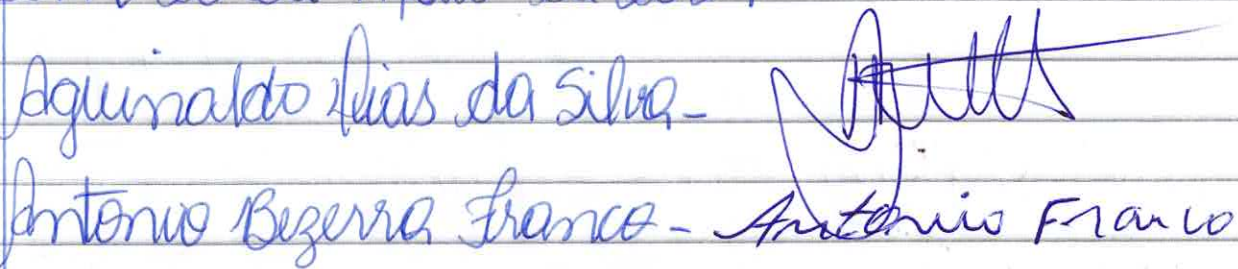 Aguinaldo Dias da Silva-
Antonio Bezerra Franco - Antonio Franco